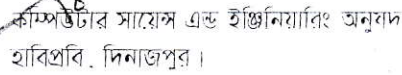 কম্পিউটার সায়েন্স এন্ড ইঞ্জিনিয়ারিং অনুষদ
হাবিপ্রবি, দিনাজপুর।